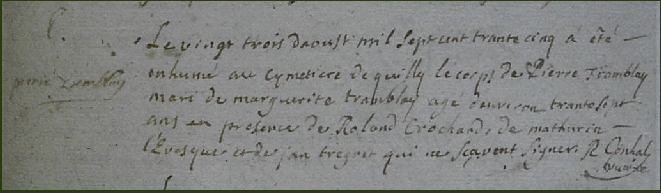 Le vingt trois daoust mil sept cent trante cinq a été
pierre Tremblay
enhumé au Cymetiere de quilly le corps de Pierre Tramblay
mari de marguerite tramblay age denviron trante sept
ans en presence de Roland Crochard, de mathurin
l'Evesque et de jan tregret qui ne scavent signer. R